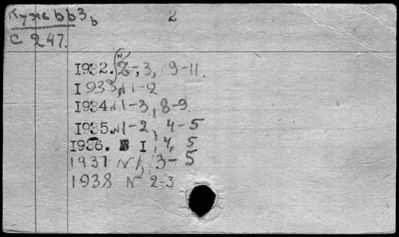 2
С 247.
1932. N 2-, 3, 9-11.
1933, N 1-2
1934 N 1-3, 8-9
1935. N 1-2, 4-5
1936. N 1, 4, 5
1937 N 1, 3-5
1938 N 2-3